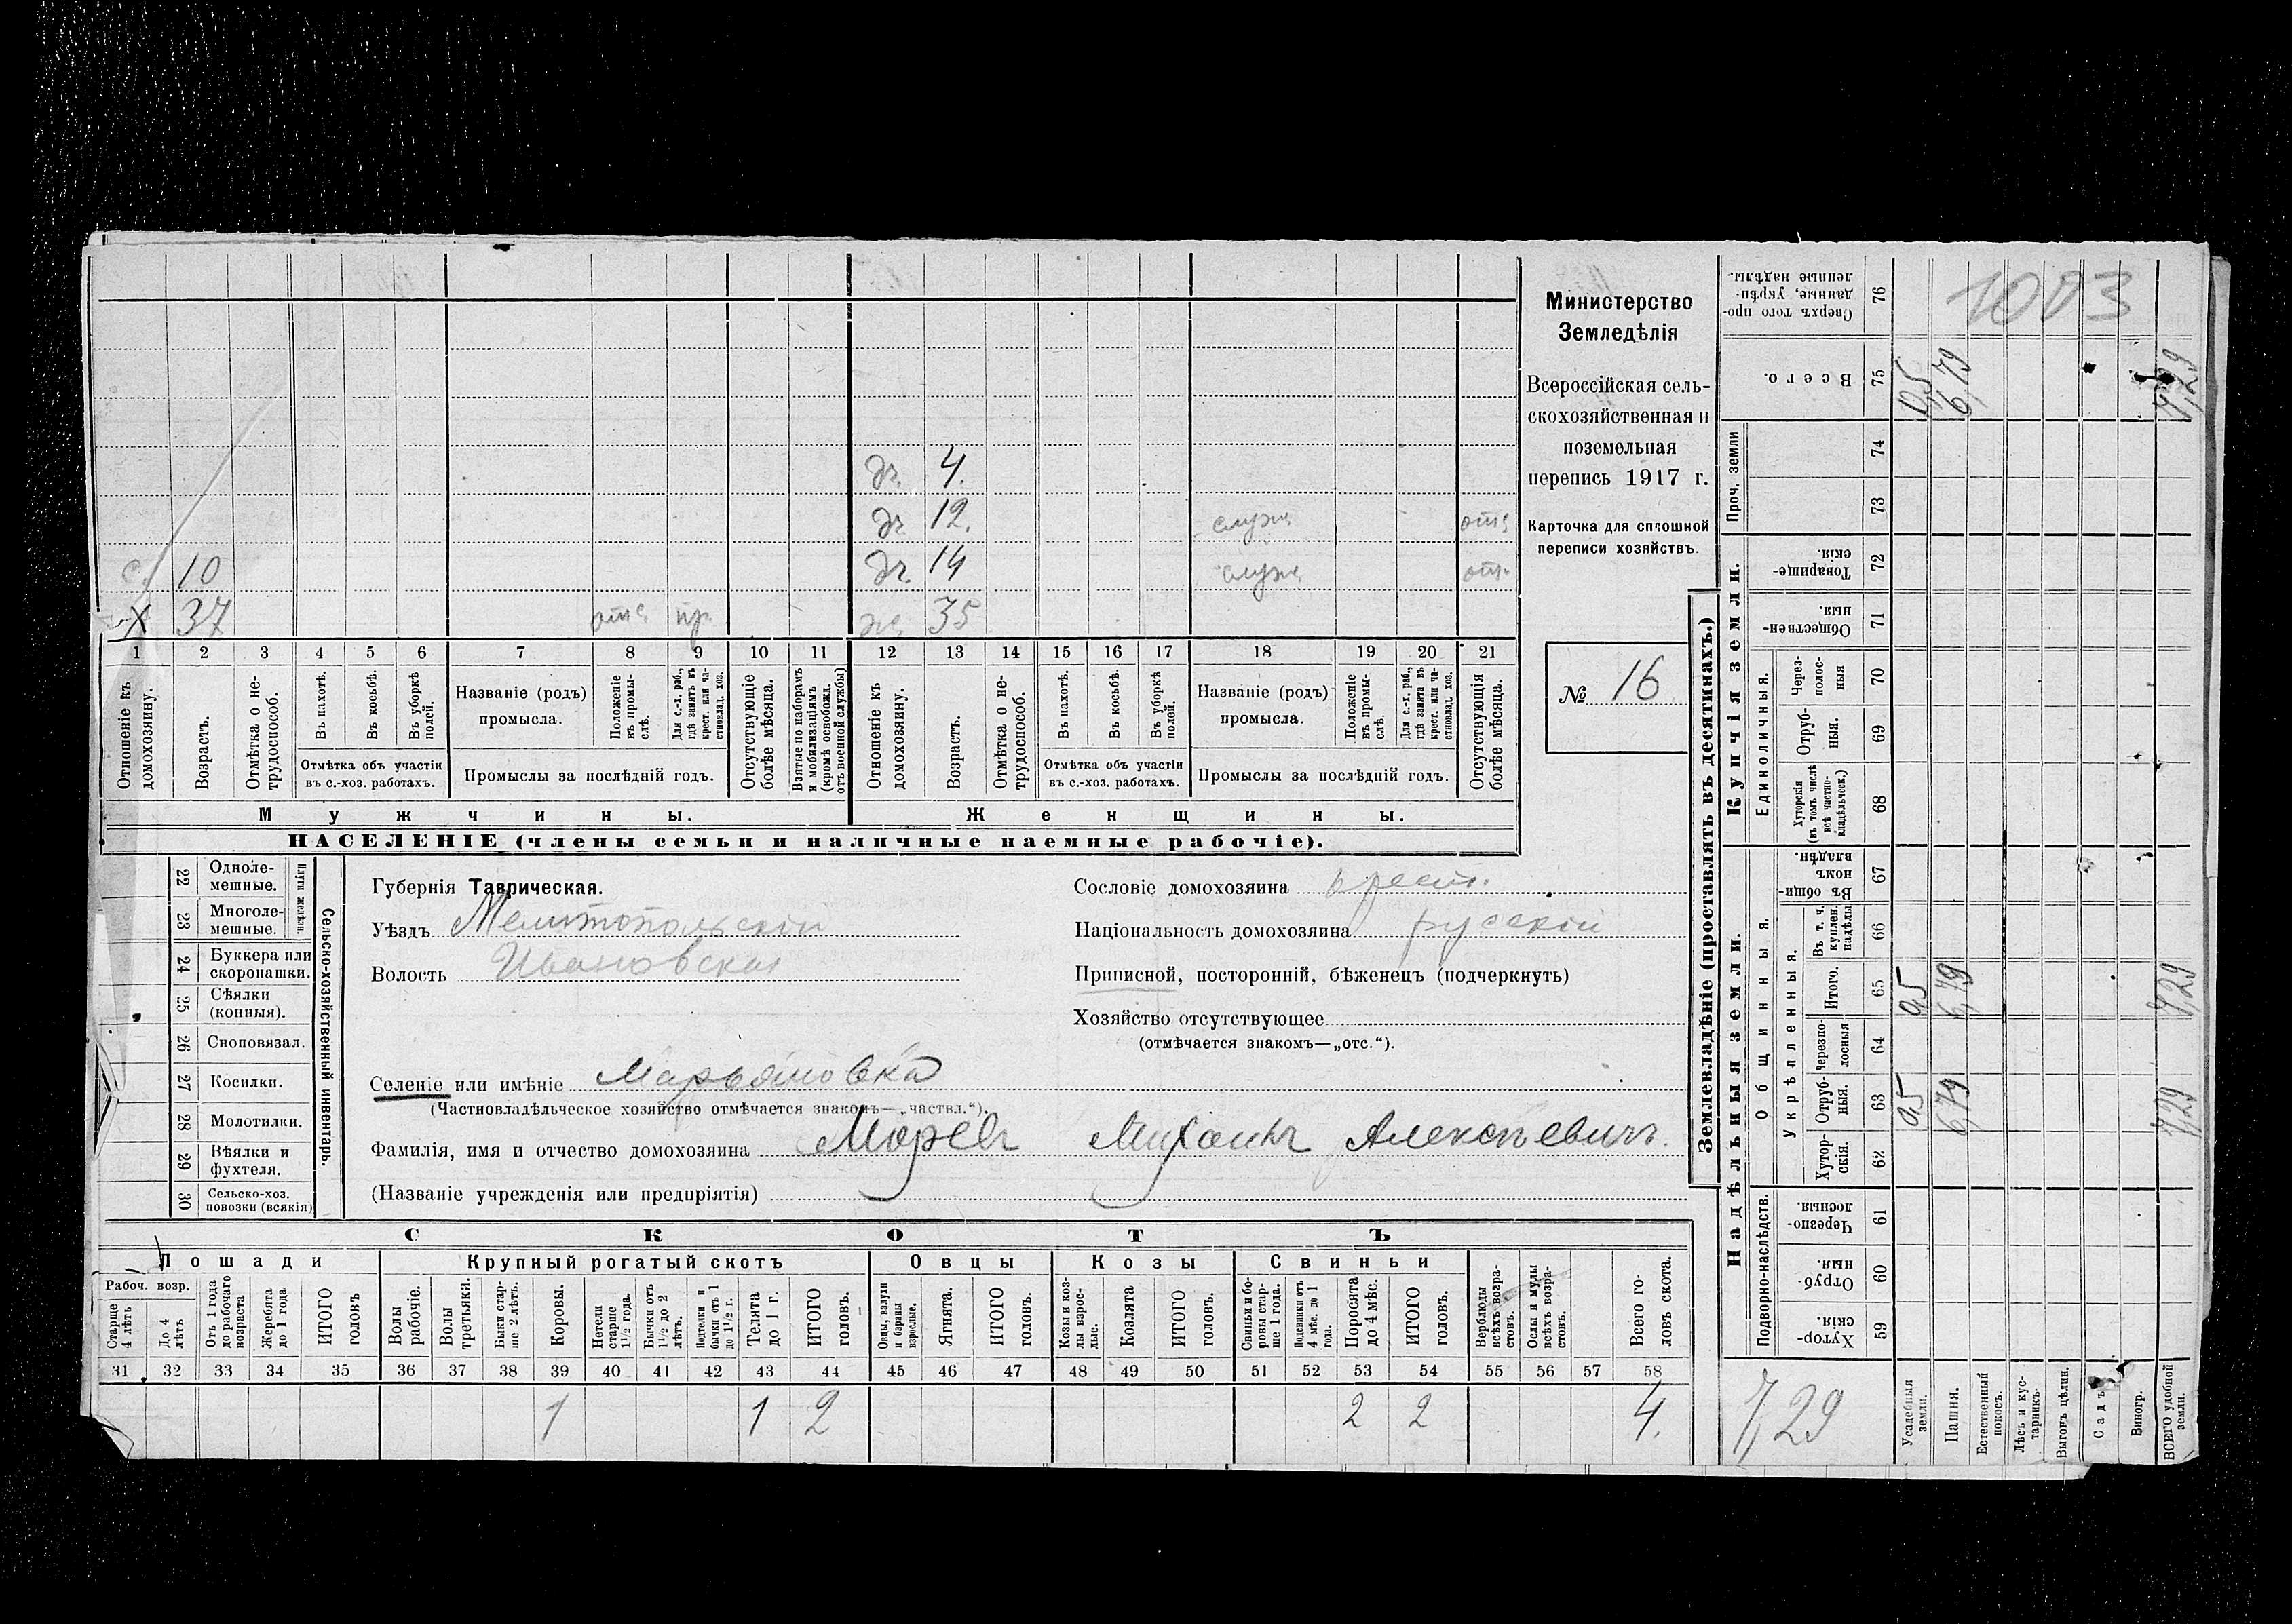 дч. 4.
дч 12. служ отс
с. 10 дч. 14 служ отс
х 37 отс пр. жа 35
1 2 3 4 5 6 7 8 9 10 11 12 13 14 15 16 17 18 19 20 21
Отношеніе къ домохозяину.
Возрастъ.
Отмѣтка о не-трудоспособ.
Въ пахотѣ.
Въ косьбѣ.
Въ уборкѣ полей.
Отмѣтка объ участіи
въ с.-хоз. работахъ.
Названіе (родъ)
промысла.
Положеніе въ промы-слѣ.
Для с.-х. раб., гдѣ занятъ въ крест. или ча-стновлад. хоз.
Промыслы за послѣдній годъ.
Отсутствующіе болѣе мѣсяца.
Взятые по наборамъ и мобилизаціямъ (кромѣ освобожд. отъ военной службы)
Отношеніе къ домохозяину.
Возрастъ.
Отмѣтка о не-трудоспособ.
Въ пахотѣ.
Въ косьбѣ.
Въ уборкѣ полей.
Отмѣтка объ участіи
въ с.-хоз. работахъ.
Названіе (родъ)
промысла.
Положеніе въ промы-слѣ.
Для с.-х. раб., гдѣ занята въ крест. или ча-стновлад. хоз.
Промыслы за послѣдній годъ.
Отсутствующія болѣе мѣсяца.
Мужчины.
Женщины.
НАСЕЛЕНІЕ (члены семьи и наличные наемные рабочіе).
Министерство
Земледѣлія
Всероссійская сель-
скохозяйственная и
поземельная
перепись 1917 г.
Карточка для сплошной
переписи хозяйствъ.
№ 16
Сельско-хозяйственный инвентарь.
Плуги желѣзн.
22 Одноле-
мешные.
23 Многоле-
мешные.
24 Буккера или
скоропашки.
25 Сѣялки
(конныя).
26 Сноповязал.
27 Косилки.
28 Молотилки.
29 Вѣялки и
фухтеля.
30 Сельско-хоз.
повозки (всякія)
Губернія Таврическая.
Уѣздъ Мелитопольскій
Волость Ивановская
Сословіе домохозяина крест.
Національность домохозяина русскій
Приписной, посторонній, бѣженецъ (подчеркнуть)
Хозяйство отсутствующее
(отмѣчается знакомъ—„отс.“).
Селеніе или имѣніе Марьяновка
(Частновладѣльческое хозяйство отмѣчается знакомъ—„частвл.“).
Фамилія, имя и отчество домохозяина Моревъ Михаилъ Алексѣевичъ.
(Названіе учрежденія или предпріятія)
СКОТЪ
Лошади Крупный рогатый скотъ Овцы Козы Свиньи
Рабоч. возр.
Старше 4 лѣтъ
До 4 лѣтъ
Отъ 1 года до рабочаго возраста
Жеребята до 1 года
ИТОГО головъ
Волы рабочіе.
Волы третьяки.
Быки стар-ше 2 лѣтъ.
Коровы.
Нетели старше 1½ года.
Бычки отъ 1½ до 2 лѣтъ.
Подтелки и бычки отъ 1 до 1½ г.
Телята до 1 г.
ИТОГО головъ.
Овцы, валухи и бараны взрослые.
Ягнята.
ИТОГО головъ.
Козы и коз-лы взрос-лые.
Козлята
ИТОГО головъ.
Свиньи и бо-ровы стар-ше 1 года.
Подсвинки отъ 4 мѣс. до 1 года.
Поросята до 4 мѣс.
ИТОГО головъ.
Верблюды всѣхъ возра-стовъ.
Ослы и мулы всѣхъ возра-стовъ.
Всего го-ловъ скота.
31 32 33 34 35 36 37 38 39 40 41 42 43 44 45 46 47 48 49 50 51 52 53 54 55 56 57 58
1 1 2 2 2 4.
Землевладѣніе (проставлять въ десятинахъ.)
1003
Сверхъ того про-данные, укрѣп-ленные надѣлы. 76
Всего. 75 0,5 6,79 7,29
Проч. земли 74
73
Купчія земли.
Товарище-скія. 72
Обществен-ныя. 71
Единоличныя.
Через-полос-ныя 70
Отруб-ныя. 69
Хуторскія (въ томъ числѣ всѣ частно-владѣльческ.) 68
Надѣльныя земли.
Общинныя.
Въ общин-номъ владѣн. 67
Укрѣпленныя.
Въ т. ч. куплен. надѣлы 66
Итого. 65 0,5 6,79 7,29
Черезпо-лосныя 64
Отруб-ныя. 63 0,5 6,79 7,29
Хутор-скія. 62
Подворно-наслѣдств.
Черезпо-лосныя. 61
Отруб-ныя. 60
Хутор-скія. 59
7,29
Усадебныя земли.
Пашня.
Естественный покосъ.
Лѣсъ и кус-тарникъ.
Выгонъ цѣлин.
Садъ
Виногр.
ВСЕГО удобной земли.